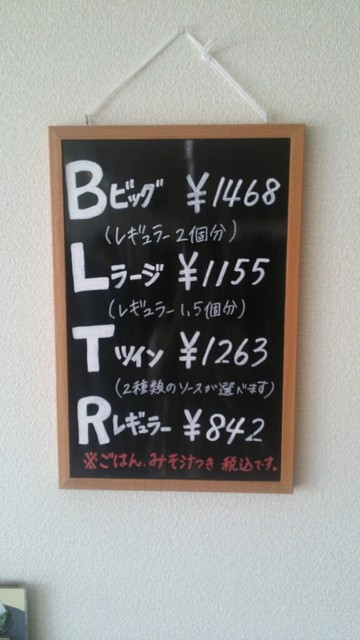 Bビッグ ¥1468
(レギュラー2個分)
Lラージ ¥1155
(レギュラー1,5個分)
Tツイン ¥1263
(2種類のソースが選べます)
Rレギュラー ¥842
※ごはん、みそ汁つき 税込です。